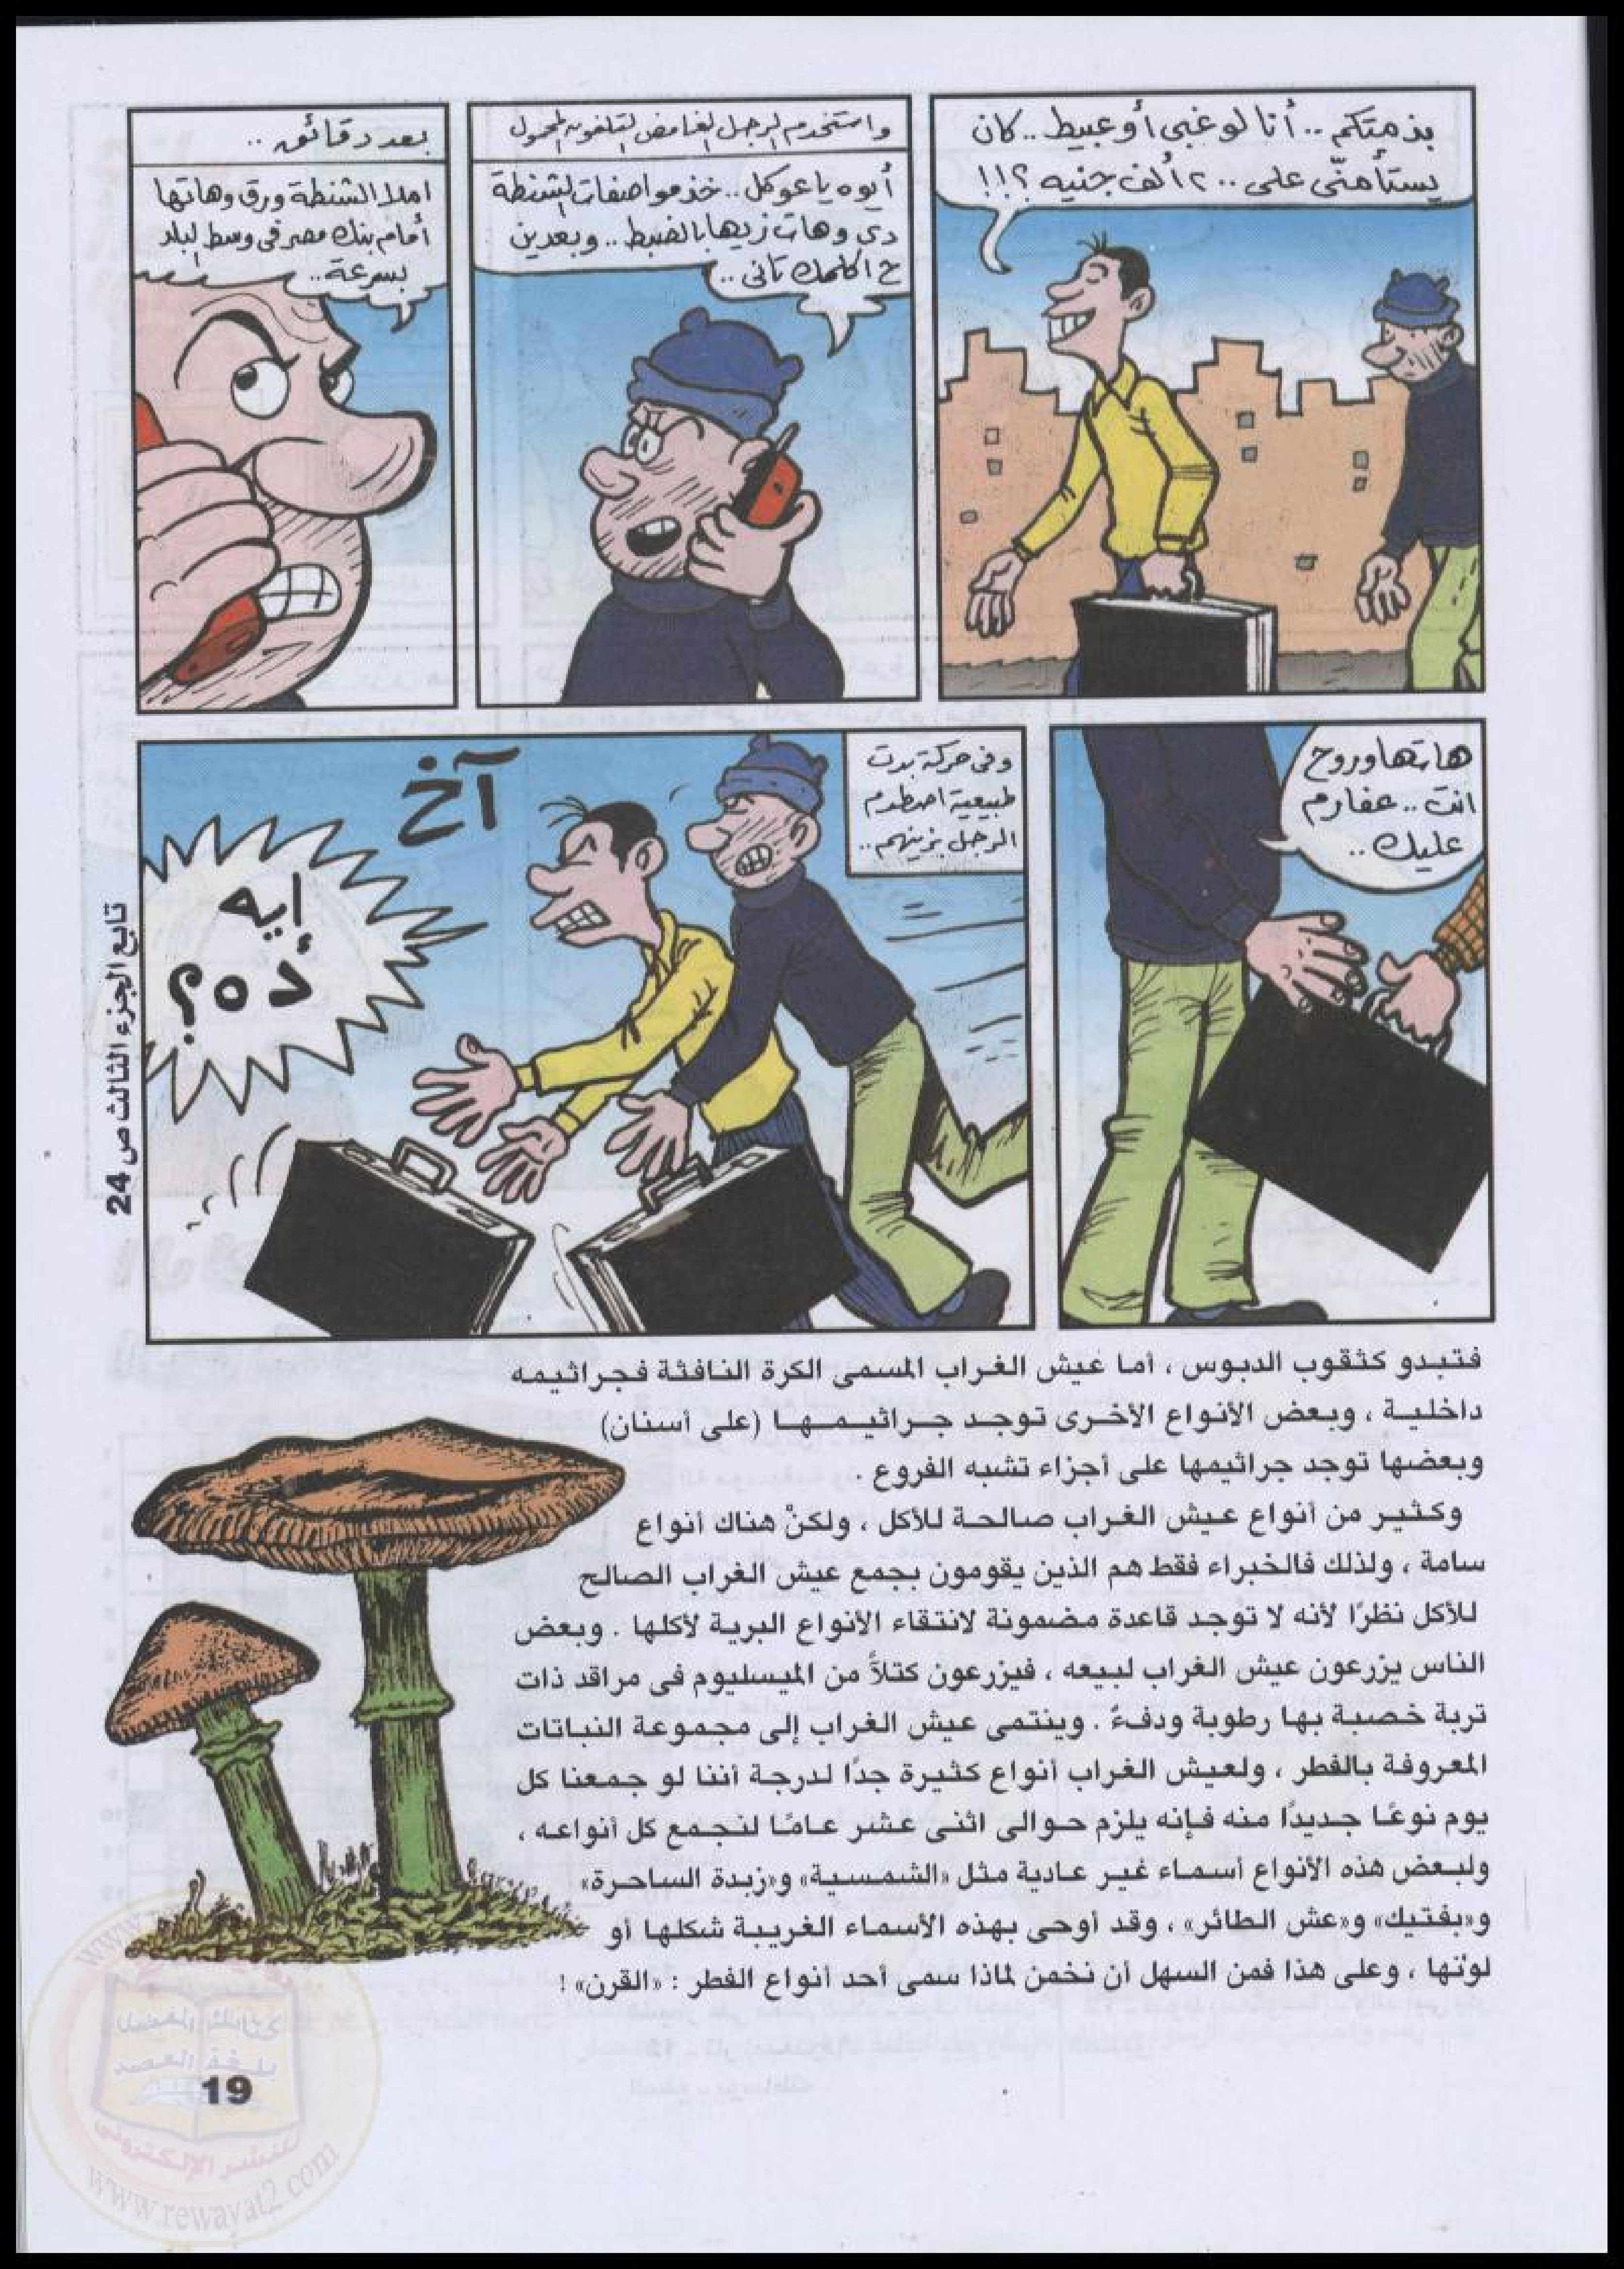 بذمتكم .. أنا لو غبى أو عبيط .. كان
يستأمنّى على ٢٠٠ ألف جنيه ؟!!
واستخدم الرجل الغامض التليفون المحمول
أيوه يا عوكل .. خذ مواصفات الشنطة
دى وهات زيها بالضبط .. وبعدين
ح اكلمك تانى ..
بعد دقائق ..
املا الشنطة ورق وهاتها
أمام بنك مصر فى وسط البلد
بسرعة ..
هاتها وروح
انت .. عفارم
عليك ..
وفى حركة بدت
طبيعية اصطدم
الرجل بزينهم ..
آخ
إيه
ده ؟
تابع الجزء الثالث ص 24
فتبدو كثقوب الدبوس ، أما عيش الغراب المسمى الكرة النافثة فجراثيمه
داخلية ، وبعض الأنواع الأخرى توجد جراثيمها (على أسنان)
وبعضها توجد جراثيمها على أجزاء تشبه الفروع .
وكثير من أنواع عيش الغراب صالحة للأكل ، ولكنْ هناك أنواع
سامة ، ولذلك فالخبراء فقط هم الذين يقومون بجمع عيش الغراب الصالح
للأكل نظرًا لأنه لا توجد قاعدة مضمونة لانتقاء الأنواع البرية لأكلها . وبعض
الناس يزرعون عيش الغراب لبيعه ، فيزرعون كتلاً من الميسليوم فى مراقد ذات
تربة خصبة بها رطوبة ودفءٌ . وينتمى عيش الغراب إلى مجموعة النباتات
المعروفة بالفطر ، ولعيش الغراب أنواع كثيرة جدًا لدرجة أننا لو جمعنا كل
يوم نوعًا جديدًا منه فإنه يلزم حوالى اثنى عشر عامًا لنجمع كل أنواعه ،
ولبعض هذه الأنواع أسماء غير عادية مثل «الشمسية» و«زبدة الساحرة»
و«بفتيك» و«عش الطائر» ، وقد أوحى بهذه الأسماء الغريبة شكلها أو
لونها ، وعلى هذا فمن السهل أن نخمن لماذا سمى أحد أنواع الفطر : «القرن» !
19
www.rewayat2.com